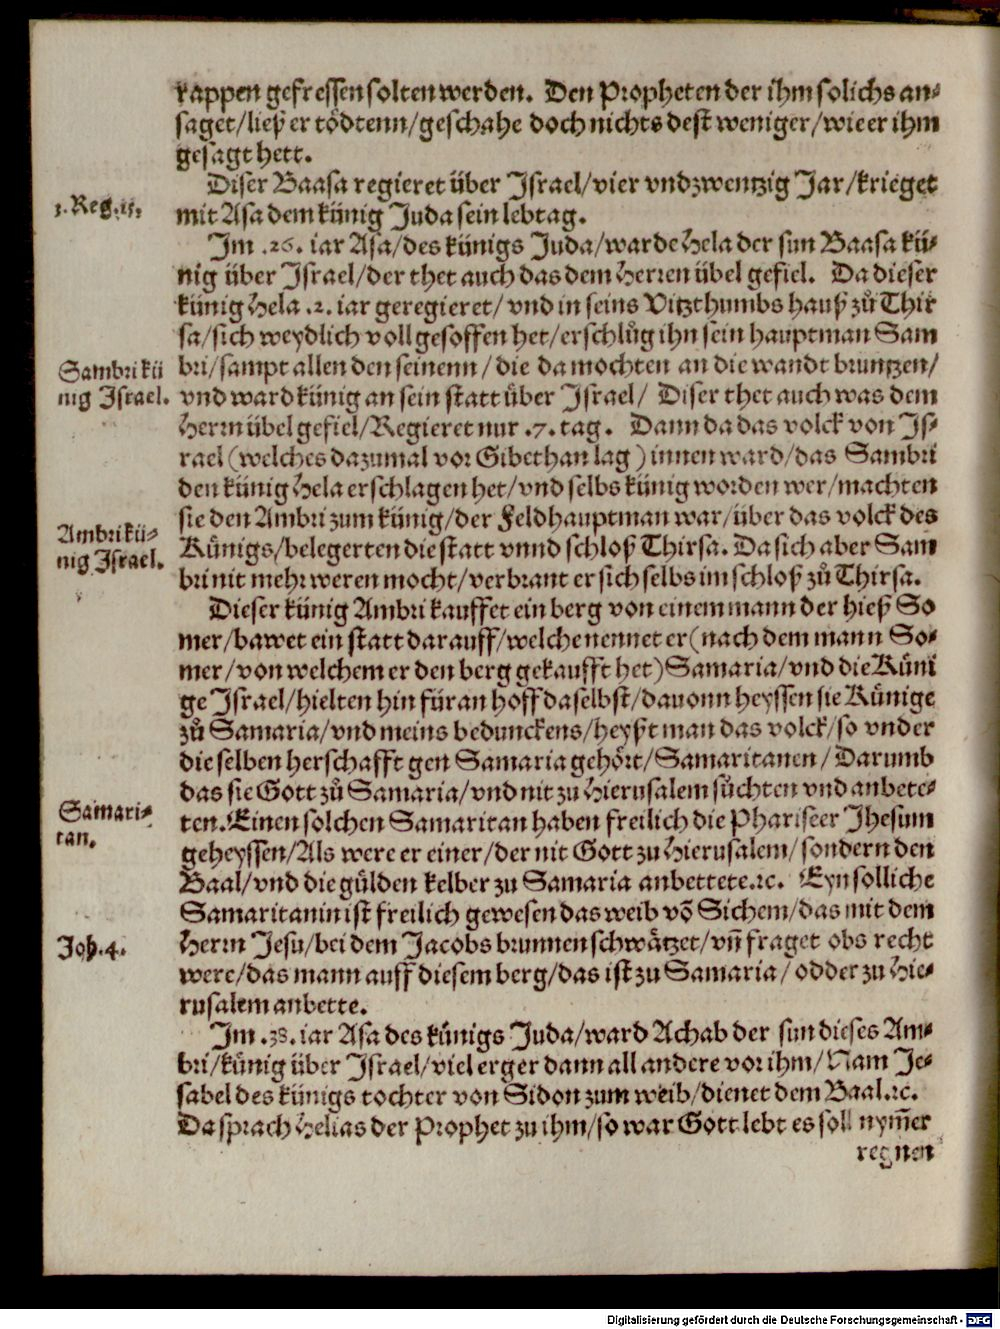 rappen gefressen solten werden. Den Propheten der ihm solichs an-
saget/ließ er tödtenn/geschahe doch nichts dest weniger/wie er ihm
gesagt hett.
Diser Baasa regieret über Israel/vier vnd zwentzig Jar/krieget
1. Reg. 15.
mit Asa dem künig Juda sein lebtag.
Im .26. iar Asa/des künigs Juda/warde Hela der sun Baasa kü-
nig über Israel/der thet auch das dem Herren übel gefiel. Da dieser
künig Hela .2. iar geregieret/vnd in seins Vitzthumbs hauß zů Thir
sa/sich weydlich voll gesoffen het/erschlůg ihn sein hauptman Sam
Sambri kü
nig Israel.
bri/sampt allen den seinenn/die da mochten an die wandt bruntzen/
vnd ward künig an sein statt über Israel/ Diser thet auch was dem
Herrn übel gefiel/Regieret nur .7. tag. Dann da das volck von Is-
rael (welches dazumal vor Gibethan lag) innen ward/das Sambri
den künig Hela erschlagen het/vnd selbs künig worden wer/machten
sie den Ambri zum künig/der Feldhauptman war/über das volck des
Ambri kü-
nig Israel.
Künigs/belegerten die statt vnnd schloß Thirsa. Da sich aber Sam
bri nit mehr weren mocht/verbrant er sich selbs im schloß zů Thirsa.
Dieser künig Ambri kauffet ein berg von einem mann der hieß So
mer/bawet ein statt darauff/welche nennet er (nach dem mann So-
mer/von welchem er den berg gekaufft het) Samaria/vnd die Küni
ge Israel/hielten hin für an hoff daselbst/dauonn heyssen sie Künige
zů Samaria/vnd meins bedunckens/heyßt man das volck/so vnder
die selben herschafft gen Samaria gehört/Samaritanen/ Darumb
das sie Gott zů Samaria/vnd nit zu Hierusalem sůchten vnd anbete-
Samari-
tan.
ten. Einen solchen Samaritan haben freilich die Phariseer Jhesum
geheyssen/Als were er einer/der nit Gott zu Hierusalem/sondern den
Baal/vnd die gülden kelber zu Samaria anbettete.ꝛc. Eyn solliche
Samaritanin ist freilich gewesen das weib võ Sichem/das mit dem
Joh. 4.
Herrn Jesu/bei dem Jacobs brunnen schwätzet/vñ fraget obs recht
were/das mann auff diesem berg/das ist zu Samaria/odder zu Hie-
rusalem anbette.
Im .38. iar Asa des künigs Juda/ward Achab der sun dieses Am-
bri/künig über Israel/viel erger dann all andere vor ihm/Nam Je-
sabel des künigs tochter von Sidon zum weib/dienet dem Baal.ꝛc.
Da sprach Helias der Prophet zu ihm/so war Gott lebt es soll nym̃er
regnen
Digitalisierung gefördert durch die Deutsche Forschungsgemeinschaft - DFG